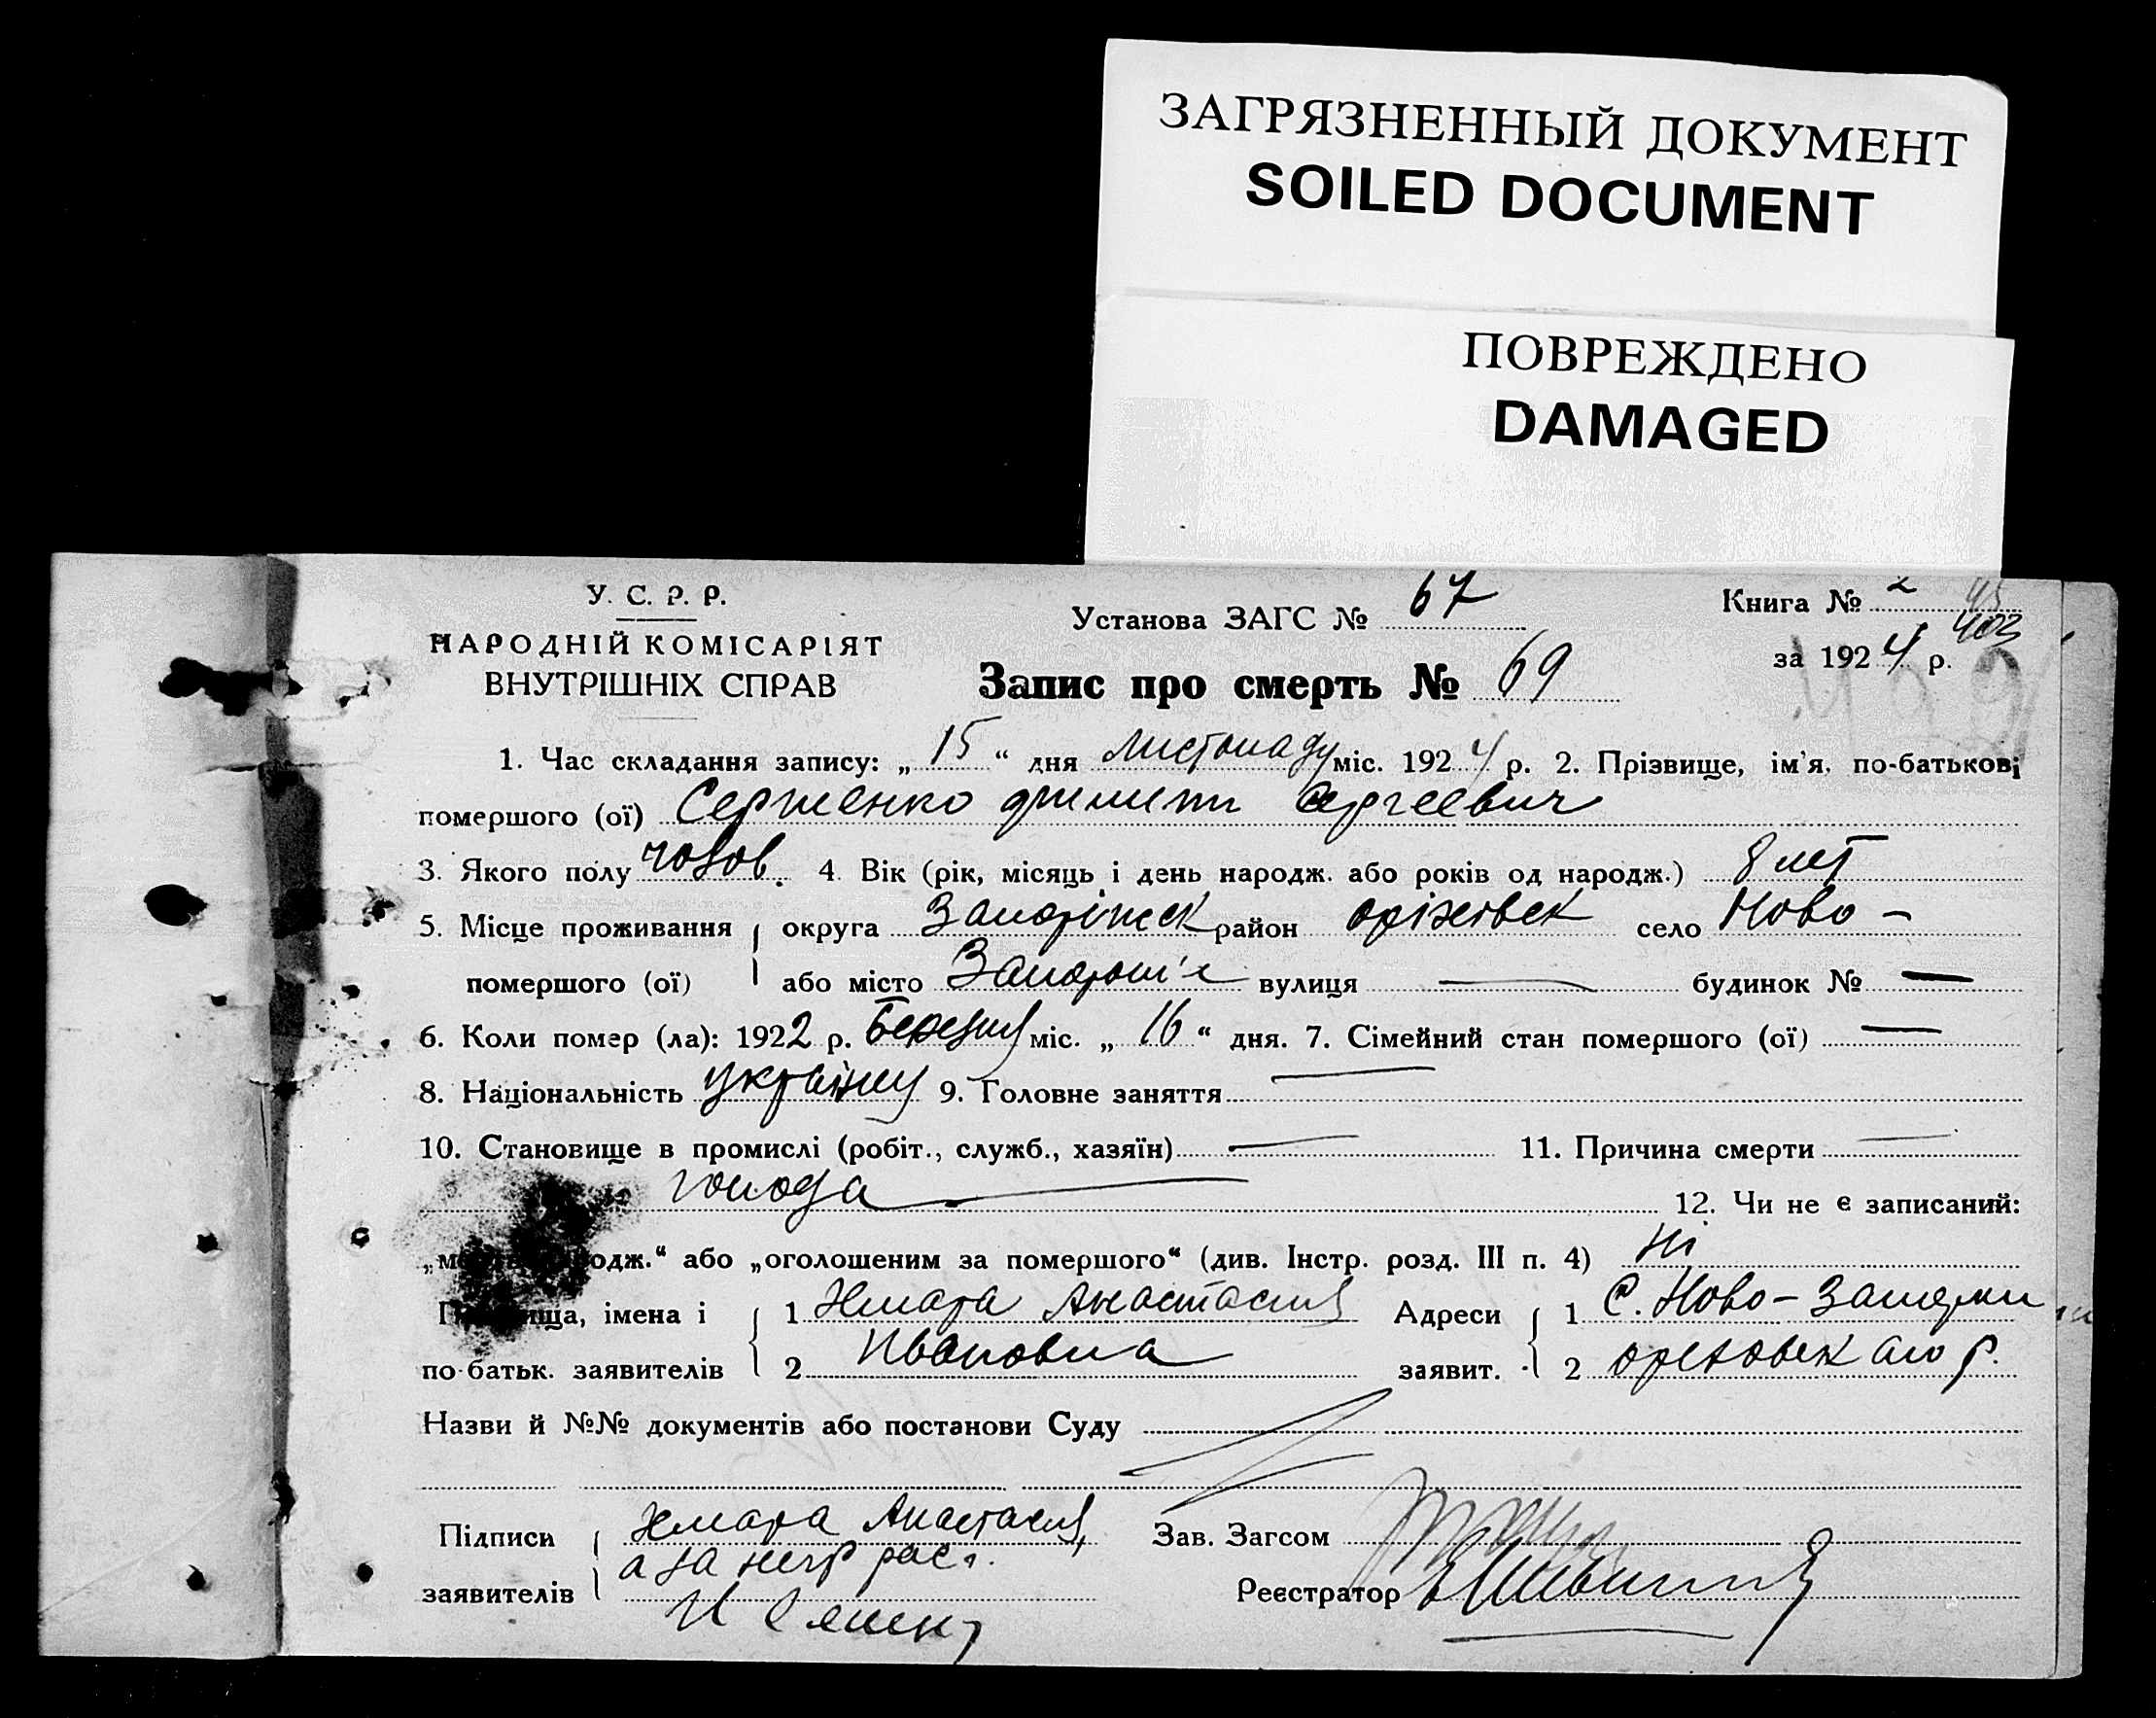 ЗАГРЯЗНЕННЫЙ ДОКУМЕНТ
SOILED DOCUMENT
ПОВРЕЖДЕНО
DAMAGED
У. С. Р. Р.
НАРОДНІЙ КОМІСАРІЯТ
ВНУТРІШНІХ СПРАВ
Установа ЗАГС № 67
Книга № 2
за 1924 р. 403
Запис про смерть № 69
1. Час складання запису: „ 15 “ дня листопаду міс. 1924 р. 2. Прізвище, ім'я, по-батькові
помершого (ої) Сергиенко Сергеевич
3. Якого полу чолов. 4. Вік (рік, місяць і день народж. або років од народж.) 8 лет
5. Місце проживання округа Запоріжск район Оріхівск село Ново –
помершого (ої) або місто Запоріж'є вулиця — будинок № —
6. Коли помер (ла): 1922 р. Березня міс. „ 16 “ дня. 7. Сімейний стан помершого (ої) —
8. Національність україну 9. Головне заняття —
10. Становище в промислі (робіт., служб., хазяїн) — 11. Причина смерти —
голода — 12. Чи не є записаний:
одж.“ або „оголошеним за помершого“ (див. Інстр. розд. III п. 4) ні
імена і 1 Хмара Анастасия Адреси 1 С. Ново–
по-батьк. заявителів 2 Ивановна заявит. 2 р.
Назви й №№ документів або постанови Суду
Підписи Хмара Анастасия, Зав. Загсом
а за негр рас.
заявителів Реєстратор